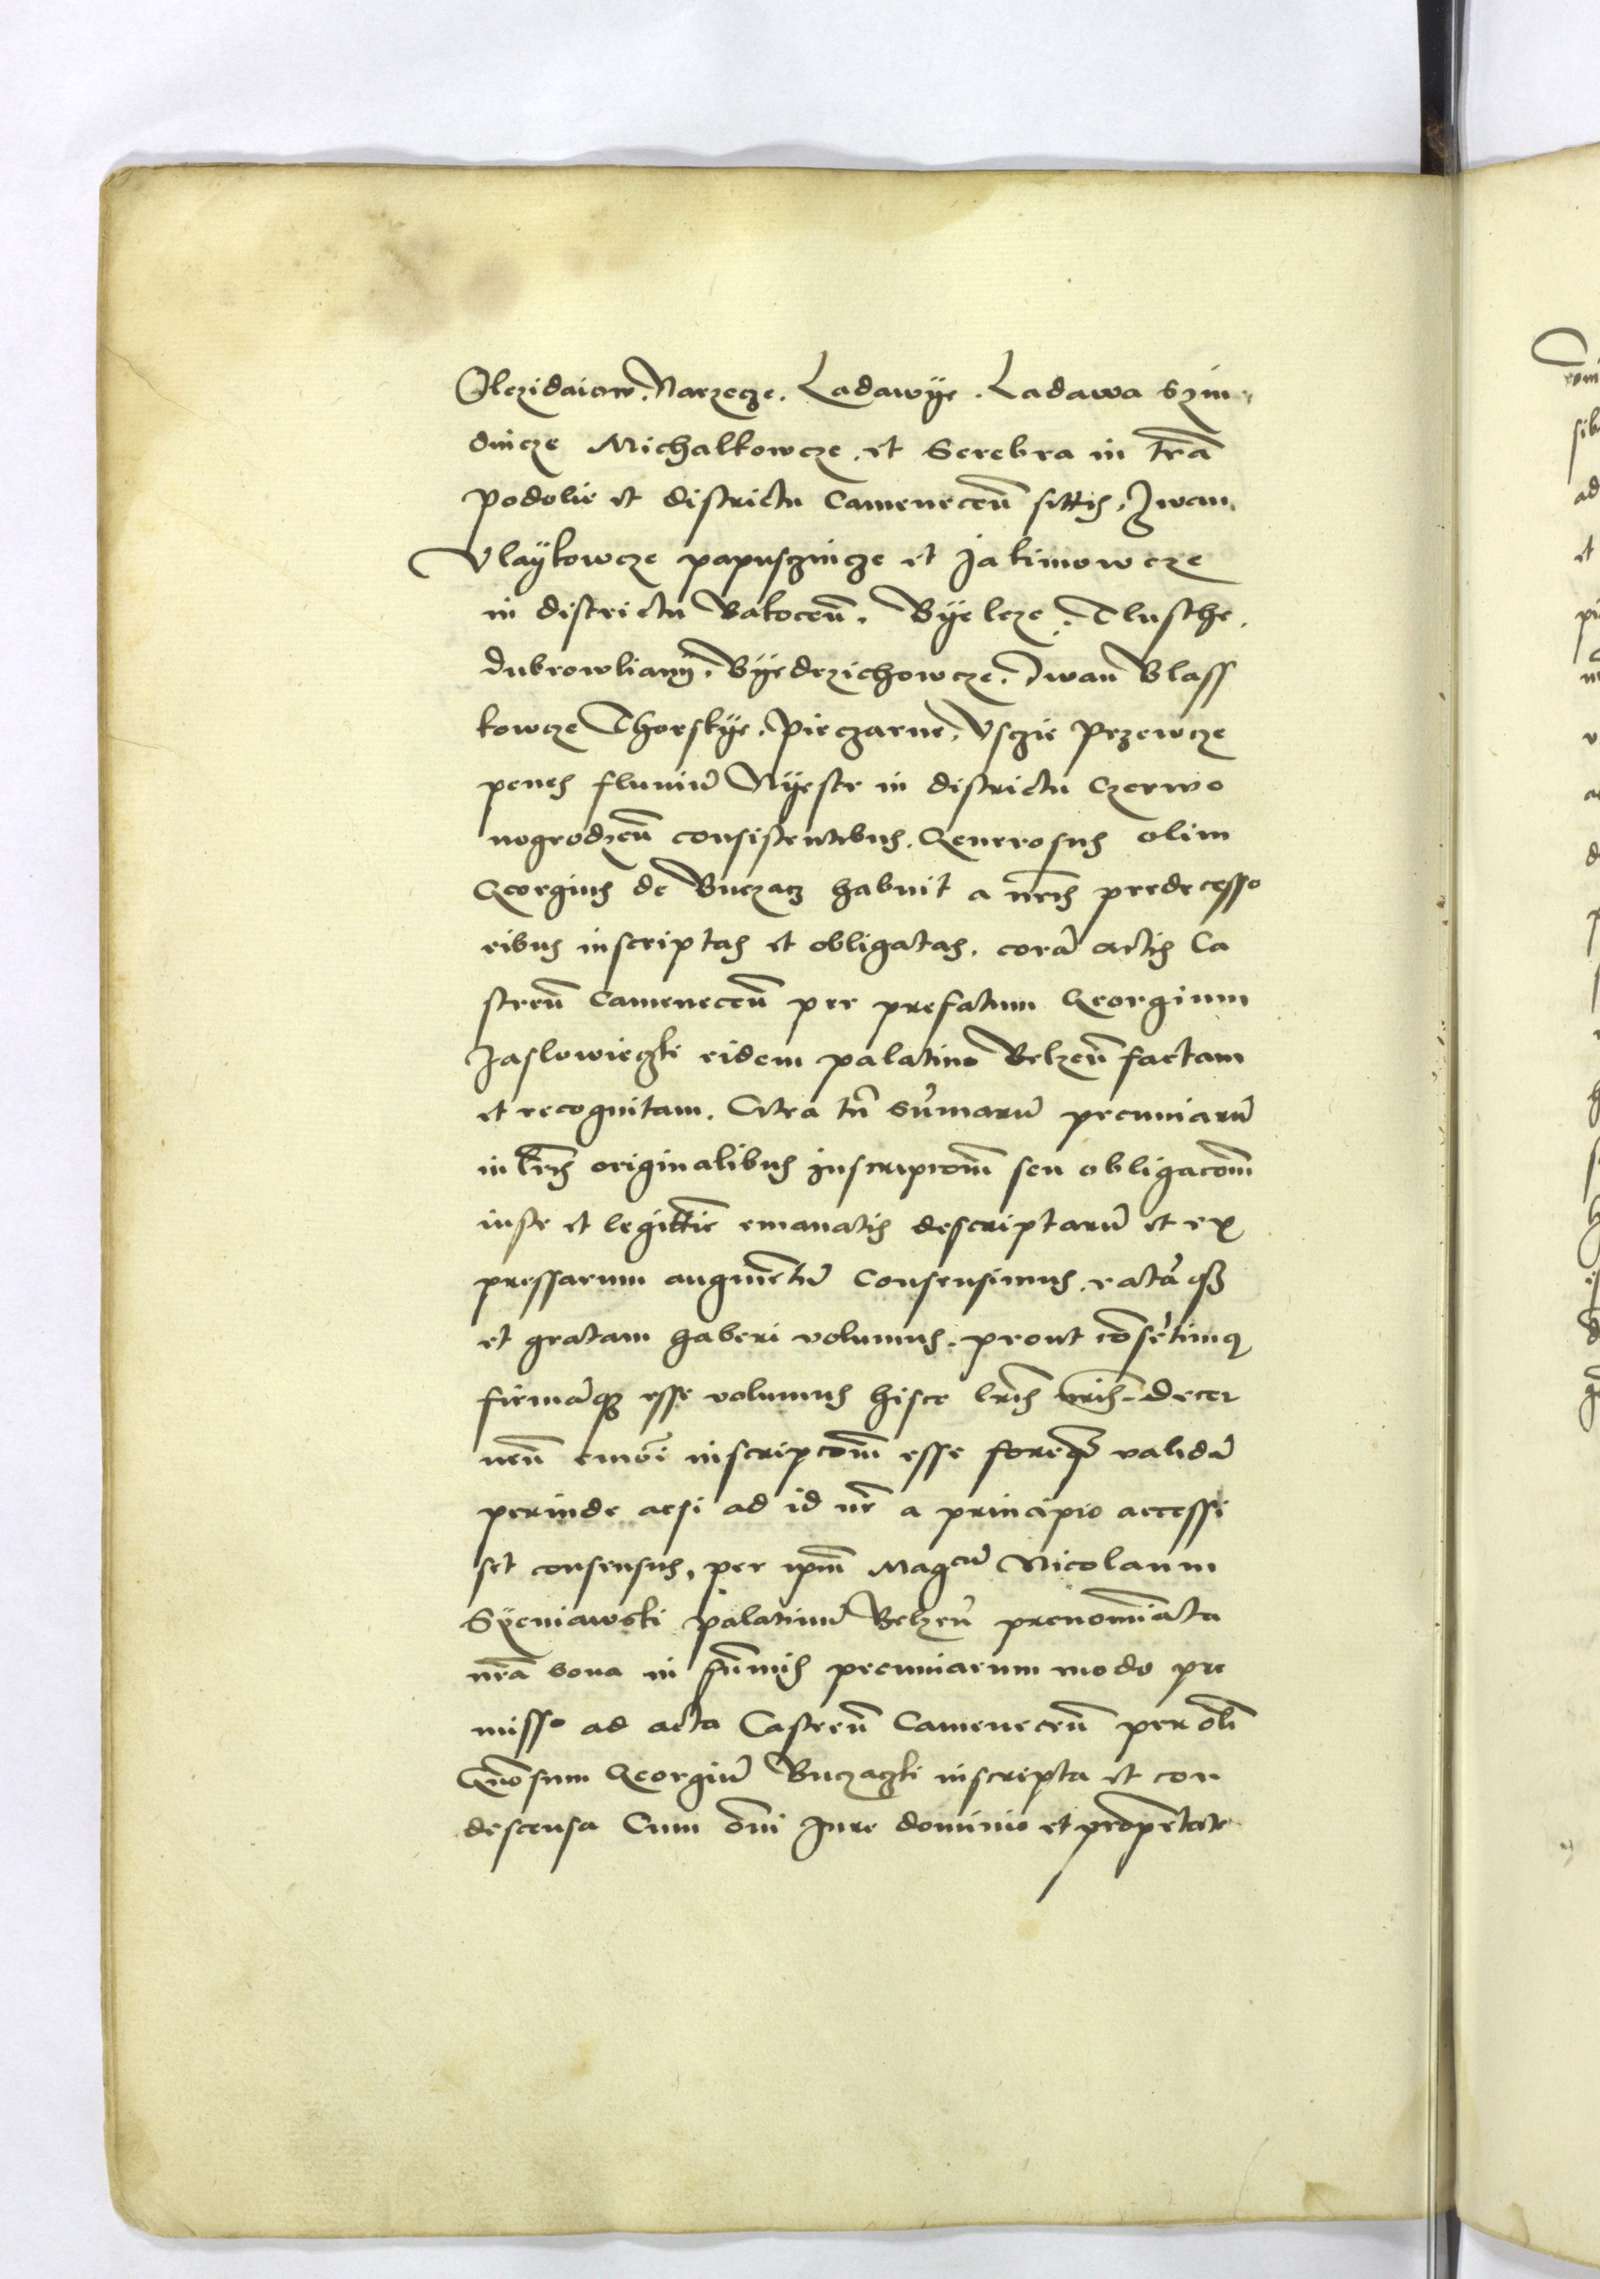 Olezidaiow. Narzecze. Ladawÿe. Ladawa Szin
dincze Michalkowcze. et Serebra in tra͞
Podolie et districtu Camenecen͞ sittis. Iwan
Vlaÿkowcze papuszincze et Jakimowcze
in districtu Bakocen͞. Bÿelcze. Tlusthe.
dubrowliany. Bÿedrzichowcze. Iwan͞ Blass
kowcze Thorskÿe. Pieczarne. Vsczie Przewcze
penes fluuiu͞ Nÿestr in districtu Czerwo
nogrodzen͞ consistentibus. Generosus olim
Georgius de Buczacz habuit a nr͞is predecesso
ribus inscriptas et obligatas. cora͞ actis Ca
stren͞ Camenecen͞ per prefatum Georgium
Jaslowieczki eidem palatino Belzen͞ factam
et recognitam. Citra tn͞ su͞maru͞ pecuniaru͞
in lr͞is originalibus Inscripcom͞ seu obligacom͞
iuste et legittie͞ emanatis descriptaru͞ et ex
pressarum augme͞tu͞ Consensimus. rata͞ qz
et gratam haberi volumus. prout co͞se͞timq
firma͞qz esse volumus hisce lr͞is nr͞is. Decer
nen͞ eiusmo͞i inscripcom͞ esse foreqz valida͞
perinde acsi ad id nr͞ a principio accessi
set consensus. per ipm͞ Mag͞cu͞ Nicolaum
Syeniawski palatinu͞ Belzen͞ prenominata
nr͞a bona in su͞mis pecuniarum modo pre
misso ad acta Castren͞ Camenecen͞ per oli͞
Gn͞osum Georgiu͞ Buczaczki inscripta et con
descensa Cum om͞i Iure dominio et propr͞etate